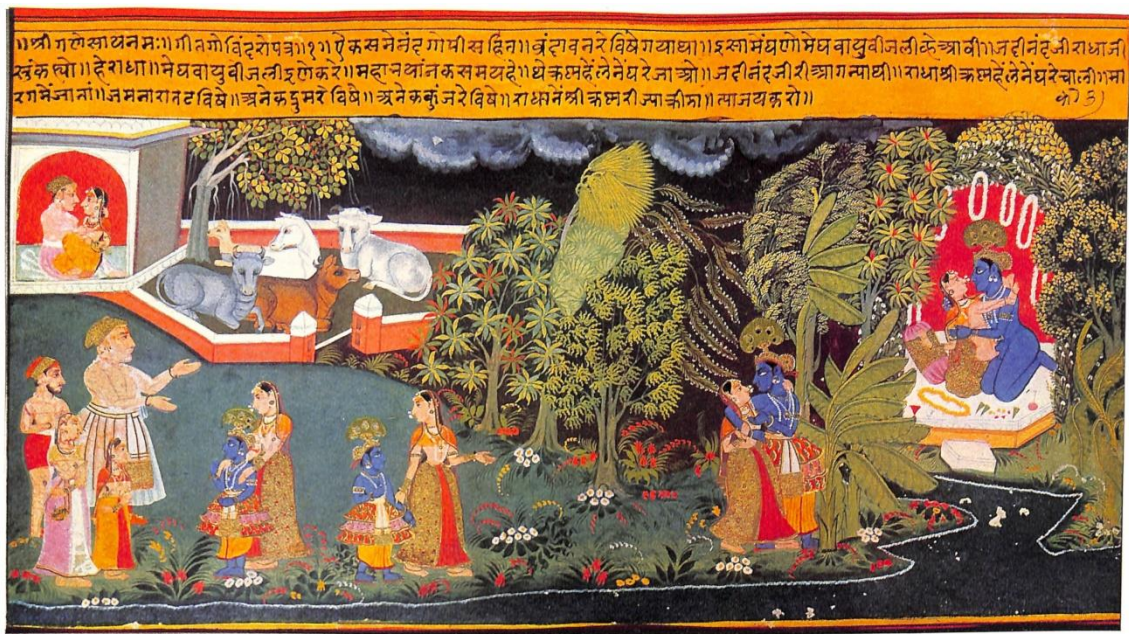 ॥श्री गणेसाय नमः॥ गीत गोविंद रो पत्र॥१॥ ऐक समे नंद गोपी सहित॥ वृंदावन रे विषे गया था॥ इसा में घणो मेघ वायु वीजली व्हे आवी॥ जदी नंद जी राधा जी
कह्यो॥ हे राधा॥ मेघ वायु वीजली इणे करे॥ महा भयानक समय हे॥ थे कृष्ण हें ले ने घरे जाओ॥ जदी नंद जी री आग्न्या थी॥ राधा श्री कृष्ण हें ले ने घरे चाली॥ मा
रग में जातां॥ जमना रा तट विषे॥ अनेक द्रुम रे विषे॥ अनेक कुंज रे विषे॥ राधा ने श्री कृष्ण री क्रीडा॥ जय करो॥